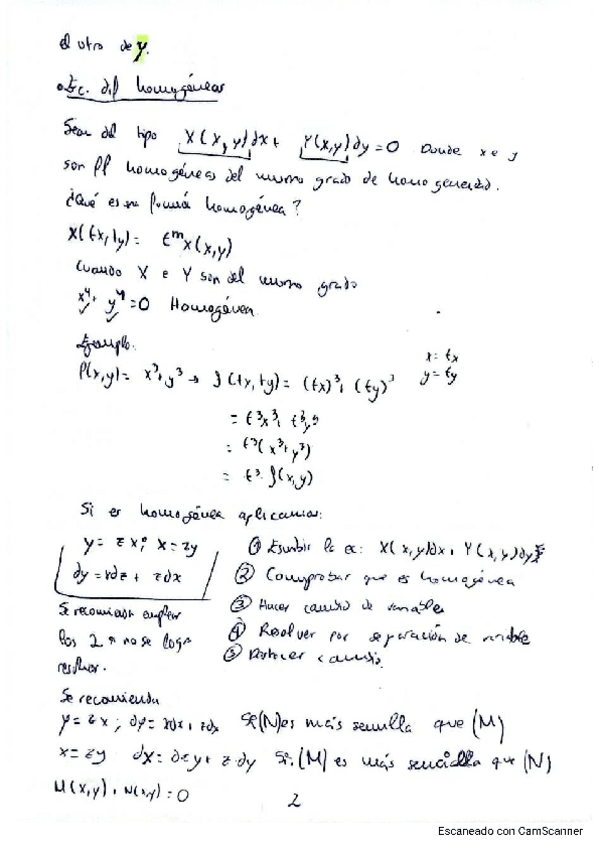 el otro de y.
• Ec. dif homogéneas
Sean del tipo X(x,y)dx + Y(x,y)dy = 0 Donde x e y
son ff homogéneas del mismo grado de homogeneidad.
¿Qué es una función homogénea?
X(tx, ty) = t^m x(x,y)
Cuando X e Y son del mismo grado
x^4 + y^4 = 0 Homogénea.
Ejemplo.
x = tx
f(x,y) = x^3 + y^3 → f(tx, ty) = (tx)^3 + (ty)^3
y = ty
= t^3x^3 + t^3y^3
= t^3(x^3 + y^3)
= t^3 · f(x,y)
Si es homogénea aplicamos:
y = zx; x = zy
dy = xdz + zdx
Se recomienda emplear
los 2 si no se logra
resolver.
① Escribir la ec: X(x,y)dx + Y(x,y)dy
② Comprobar que es homogénea
③ Hacer cambio de variables
④ Resolver por separación de variable
⑤ Deshacer cambio.
Se recomienda
y = zx; dy = zdx + xdz Si (N) es más sencilla que (M)
x = zy dx = dzy + z dy Si (M) es más sencilla que (N)
M(x,y) + N(x,y) = 0
2
Escaneado con CamScanner